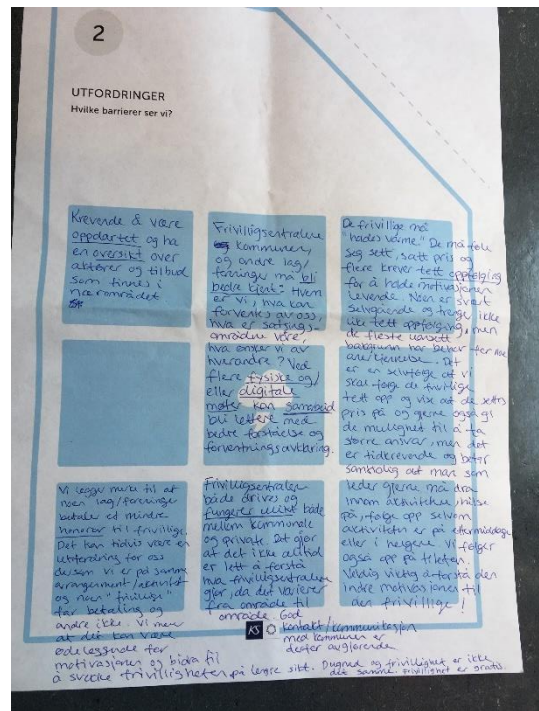 2
UTFORDRINGER
Hvilke barrierer ser vi?
Krevende å være
oppdatert og ha
en oversikt over
aktører og tilbud
som finnes i
nærområdet
Frivilligsentralene
kommunen,
og andre lag/
foreninger må bli
bedre kjent: Hvem
er vi, hva kan
forventes av oss,
hva er satsings-
områdene våre,
hva ønsker vi av
hverandre? Ved
flere fysiske og/
eller digitale
møter kan samarbeid
bli lettere med
bedre forståelse og
forventningsavklaring.
De frivillige må
"holdes varme." De må føle
seg sett, satt pris og
flere krever tett oppfølging
for å holde motivasjonen
levende. Noen er svært
selvgående og trenger ikke
like tett oppfølging, men
de fleste uansett
bakgrunn har behov for noe
anerkjennelse. Det
er en selvfølge at vi
skal følge de frivillige
tett opp og vise at de settes
pris på og gjerne også gi
de mulighet til å ta
større ansvar, men det
er tidkrevende og betyr
samtidig at man som
leder gjerne må dra
innom aktiviteter, hilse
på, følge opp selv om
aktiviteten er på ettermiddagen
eller i helgene. Vi følger
også opp på telefon.
Veldig viktig å forstå den
indre motivasjonen til
den frivillige!
Vi legger merke til at
noen lag/foreninger
betaler et mindre
honorar til frivillige.
Det kan tidvis være en
utfordring for oss
dersom vi er på samme
arrangement/aktivitet
og noen "frivillige"
får betaling og
andre ikke. Vi mener
at det kan være
ødeleggende for
motivasjonen og bidra til
å svekke frivilligheten på lengre sikt. Dugnad og frivillighet er ikke
det samme. Frivillighet er gratis.
Frivilligsentralen
både drives og
fungerer ulikt både
mellom kommunale
og private. Det gjør
at det ikke alltid
er lett å forstå
hva frivilligsentralene
gjør, da det varierer
fra område til
område. God
kontakt/kommunikasjon
med kommunen er
derfor avgjørende
KS